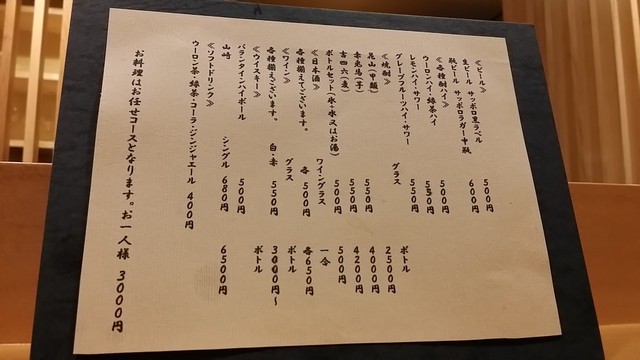 ≪ビール≫
生ビール サッポロ黒ラベル 500円
瓶ビール サッポロラガー中瓶 600円
≪各種酎ハイ≫
ウーロンハイ・緑茶ハイ 500円
レモンハイ・サワー 550円
グレープフルーツハイ・サワー 550円
≪焼酎≫ グラス ボトル
花山(甲類) 2500円
赤兎馬(芋) 550円 4000円
吉四六(麦) 550円 4200円
ボトルセット(氷+水又はお湯) 500円 500円
≪日本酒≫ ワイングラス 一合
各種揃えてございます。 各500円 各650円
≪ワイン≫ グラス ボトル
各種揃えございます。 白・赤 550円 3000円〜
≪ウイスキー≫ ボトル
バランタインハイボール 500円
山崎 シングル 680円 6500円
≪ソフトドリンク≫
ウーロン茶・緑茶・コーラ・ジンジャエール 400円
お料理はお任せコースとなります。お一人様 3000円